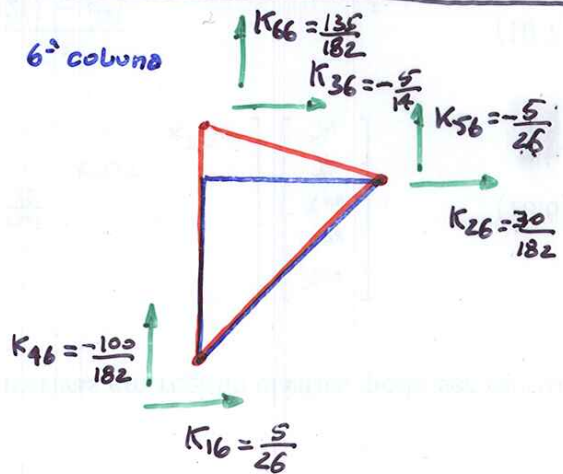 6ª coluna
K66 = 135/182
K36 = -5/14
K56 = -5/26
K26 = 30/182
K46 = -100/182
K16 = 5/26